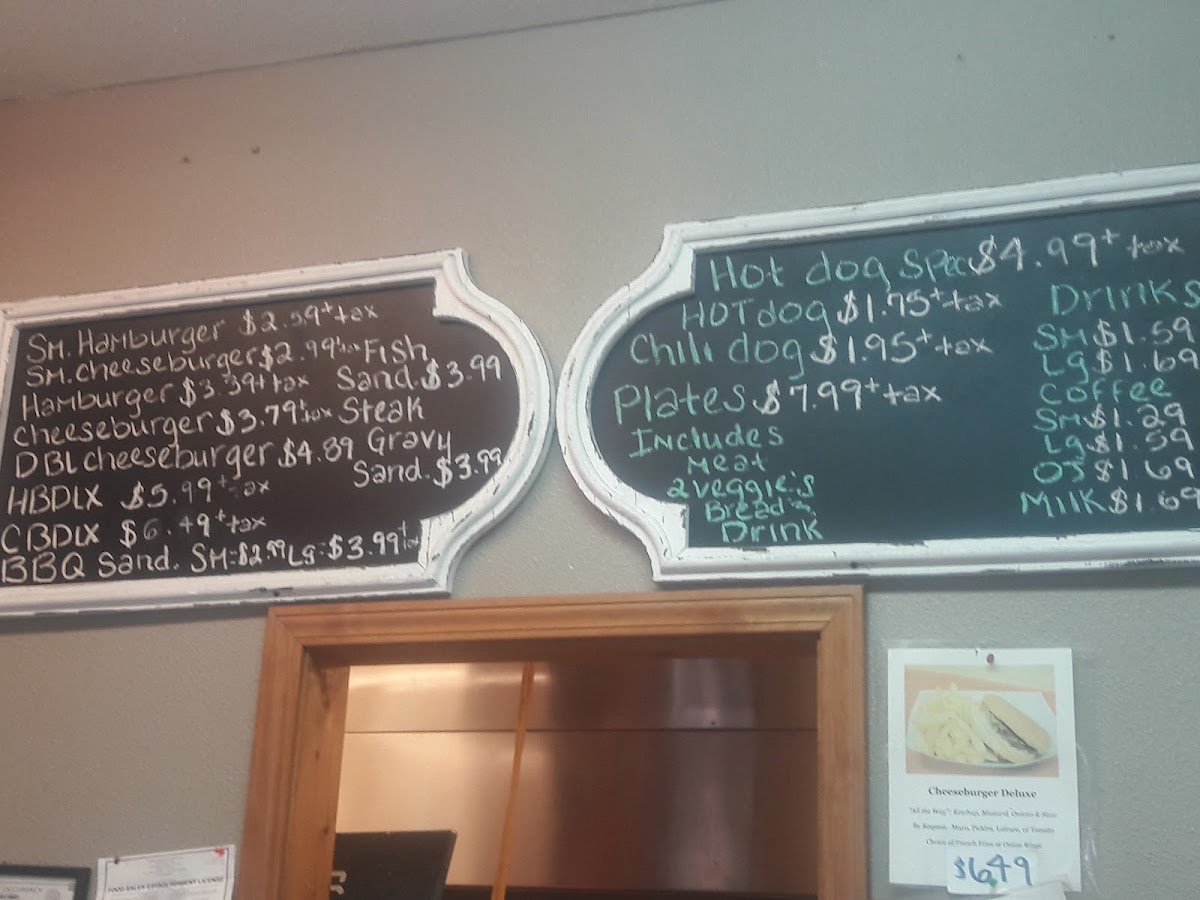 SM. Hamburger $2.59+tax
SM. cheeseburger $2.99+tax
Hamburger $3.39+tax
cheeseburger $3.79+tax
DBL cheeseburger $4.89
HBDLX $5.99+tax
CBDLX $6.49+tax
BBQ Sand. SM-$2.99 Lg-$3.99+tax
Fish
Sand. $3.99
Steak
Gravy
Sand. $3.99
Hot dog Spec $4.99+tax
HOT dog $1.75+tax
Chili dog $1.95+tax
Plates $7.99+tax
Includes
Meat
2 veggie's
Bread
Drink
Drinks
SM $1.59
Lg $1.69
Coffee
SM $1.29
Lg $1.59
OJ $1.69
Milk $1.69
Cheeseburger Deluxe
"All the Way": Ketchup, Mustard, Onions & Slaw
By Request: Mayo, Pickles, Lettuce, or Tomato
Choice of French Fries or Onion Rings
$6.49
FOOD SALES ESTABLISHMENT LICENSE